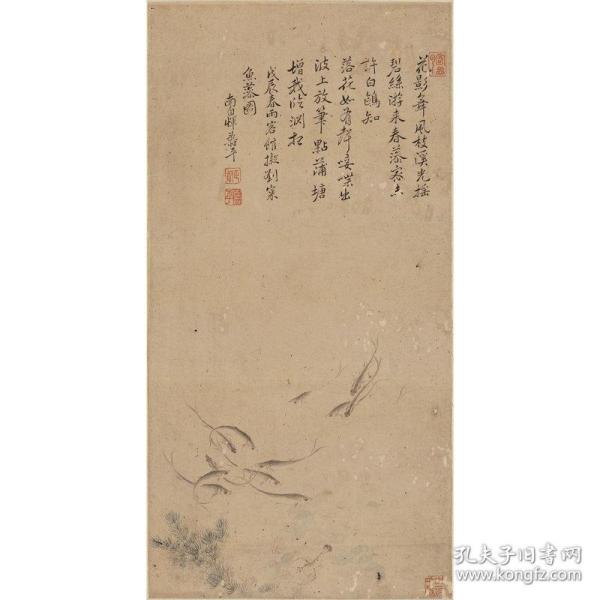 花影舞風枝溪光搖
碧絲游来春藻密只
許白鷗知
落花如有聲唼喋出
波上放筆點蒲塘
增我臨渊想
戊辰春雨客館擬劉寀
魚藻圖
南田惲壽平
孔夫子旧书网
www.kongfz.com